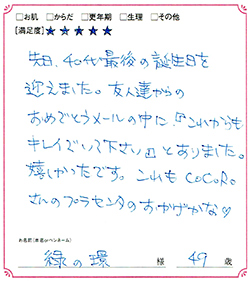 □お肌 □からだ □更年期 □生理 □その他
[満足度] ★★★★★
先日、40代最後の誕生日を
迎えました。友人達からの
おめでとうメールの中に、『これからも
キレイでいて下さい』とありました。
嬉しかったです。これも CoCoRo
さんのプラセンタのおかげかな♡
お名前(本名orペンネーム)
緑の環 様 49 歳